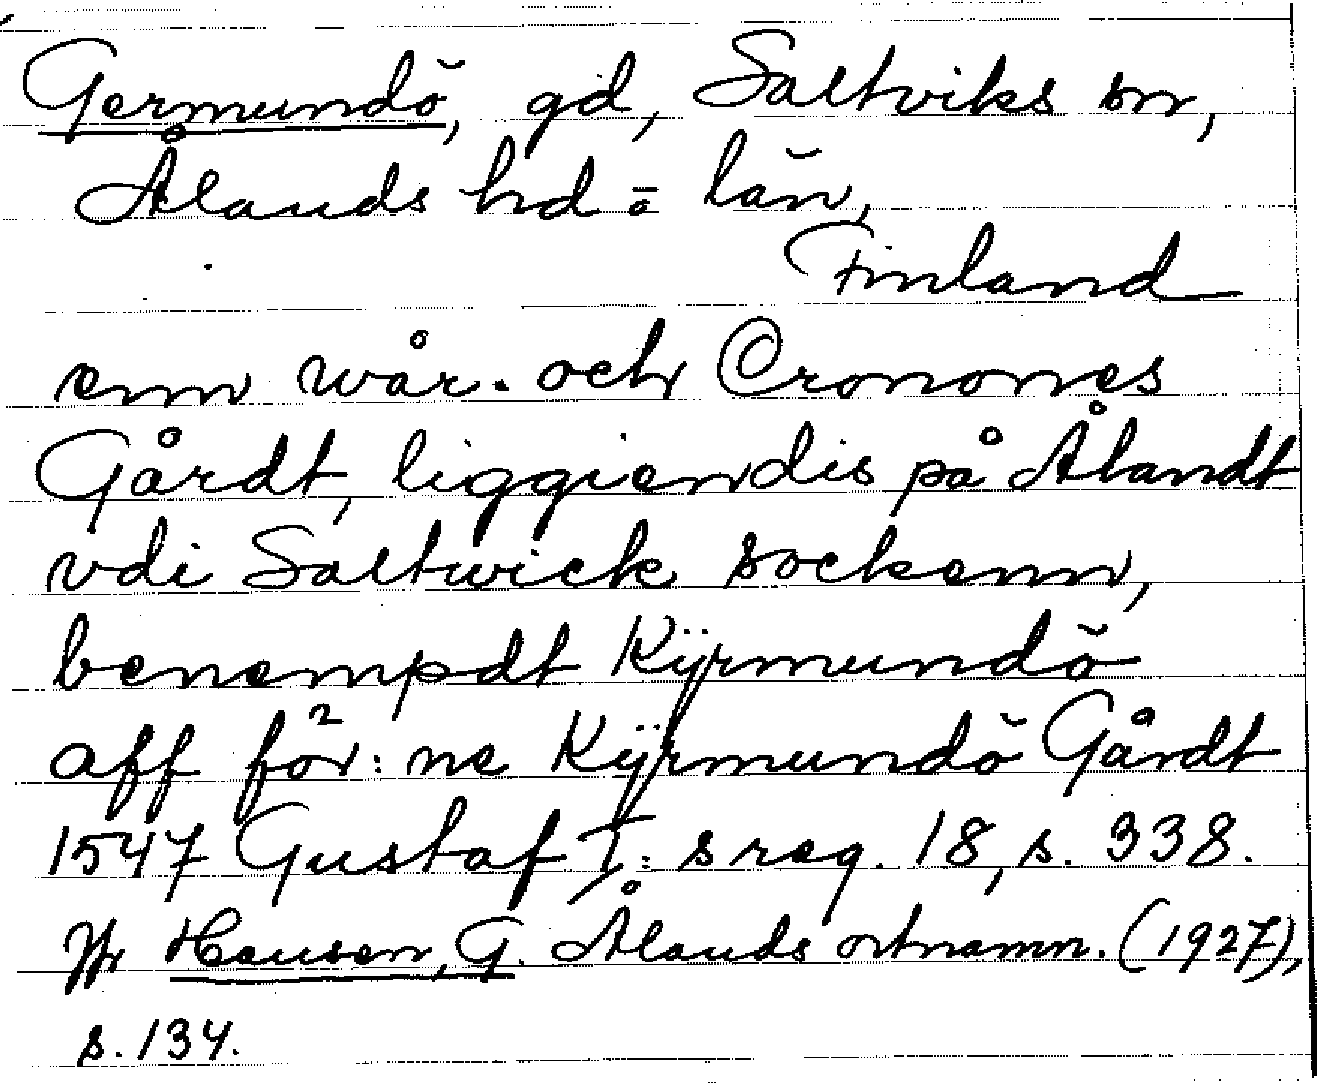 Germundö, gd, Saltviks sn,
Ålands hd o län,
Finland
enn wår- och Cronones
Gårdt, liggiendis på Ålandt
vdi Saltwick sockenn,
benempdt Kÿrmundö
aff för:ne Kÿrmundö Gårdt
1547 Gustaf I:s reg. 18, s. 338.
Jfr Hausen, G. Ålands ortnamn. (1927),
s. 134.